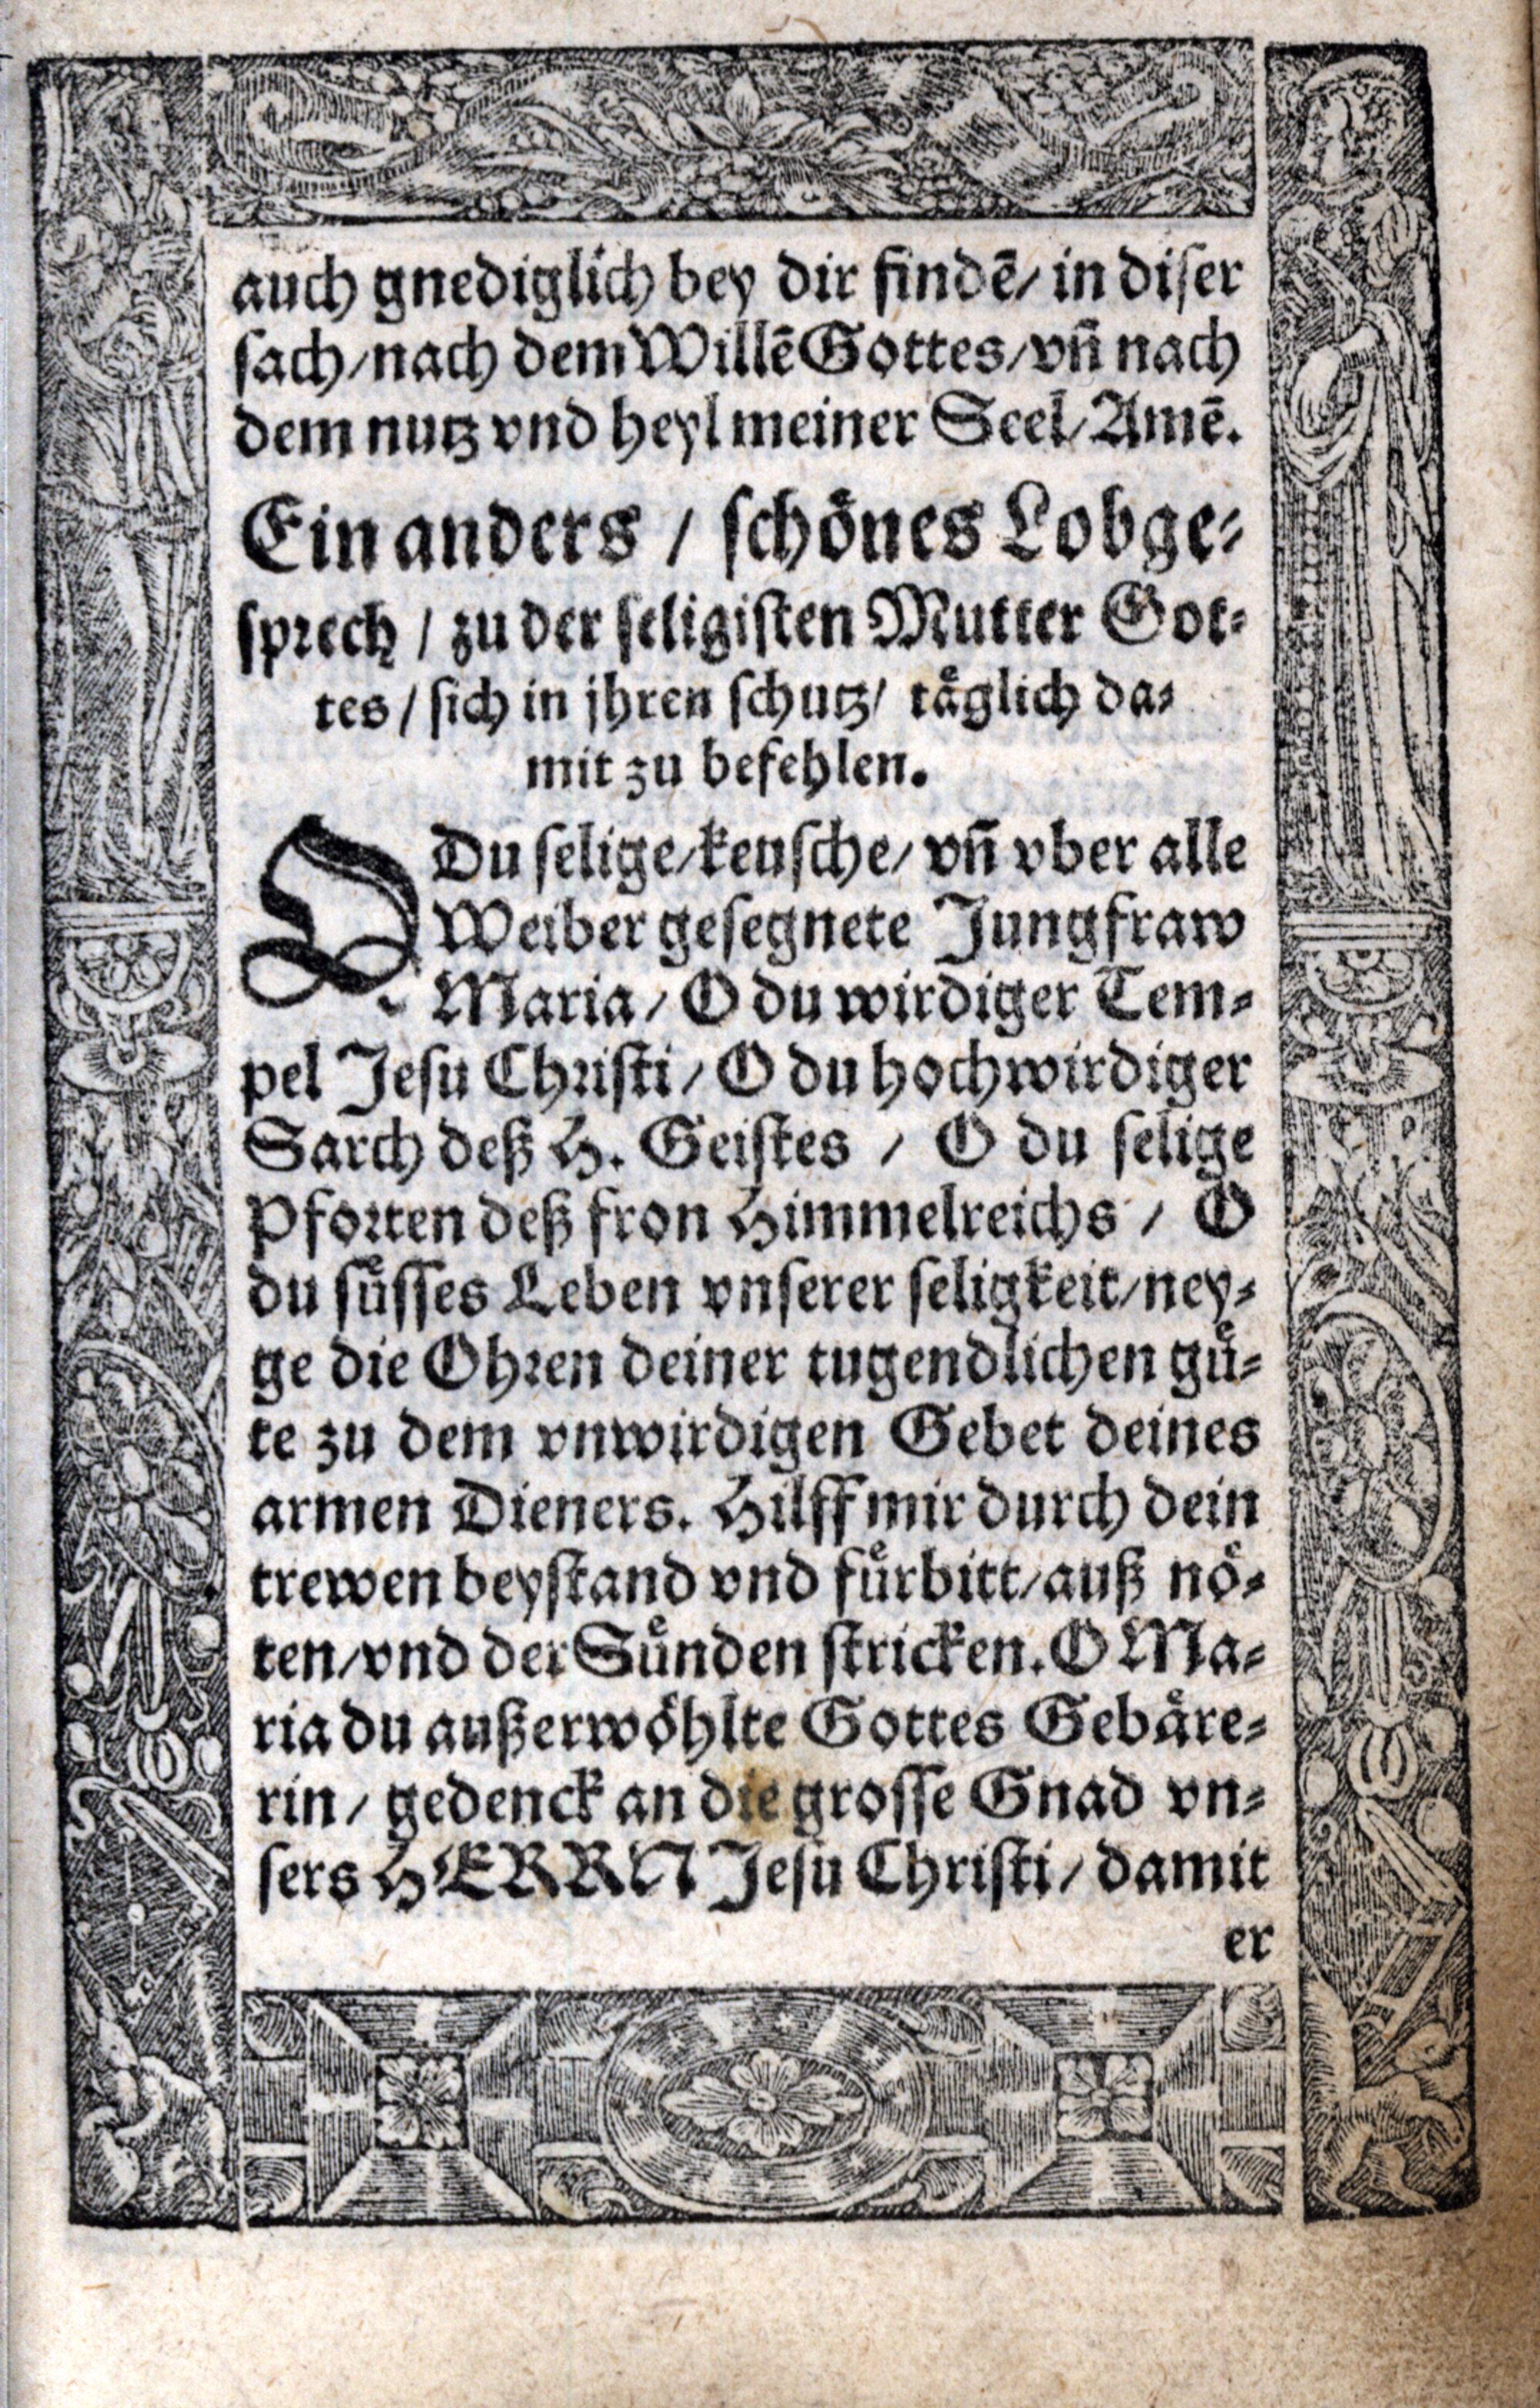 auch gnediglich bey dir findē/ in diser
sach/nach dem Willē Gottes/vn̄ nach
dem nutz vnd heyl meiner Seel/Amē.
Ein anders / schönes Lobge⸗
sprech / zu der seligisten Mutter Got⸗
tes / sich in jhren schutz/ täglich da⸗
mit zu befehlen.
O Du selige/keusche/ vn̄ vber alle
Weiber gesegnete Jungfraw
Maria / O du wirdiger Tem⸗
pel Jesu Christi / O du hochwirdiger
Sarch deß H. Geistes / O du selige
Pforten deß fron Himmelreichs / O
du süsses Leben vnserer seligkeit/ney⸗
ge die Ohren deiner tugendlichen gü⸗
te zu dem vnwirdigen Gebet deines
armen Dieners. Hilff mir durch dein
trewen beystand vnd fürbitt/auß nö⸗
ten/vnd der Sünden stricken. O Ma⸗
ria du außerwöhlte Gottes Gebäre⸗
rin / gedenck an die grosse Gnad vn⸗
sers HERRN Jesu Christi / damit
er